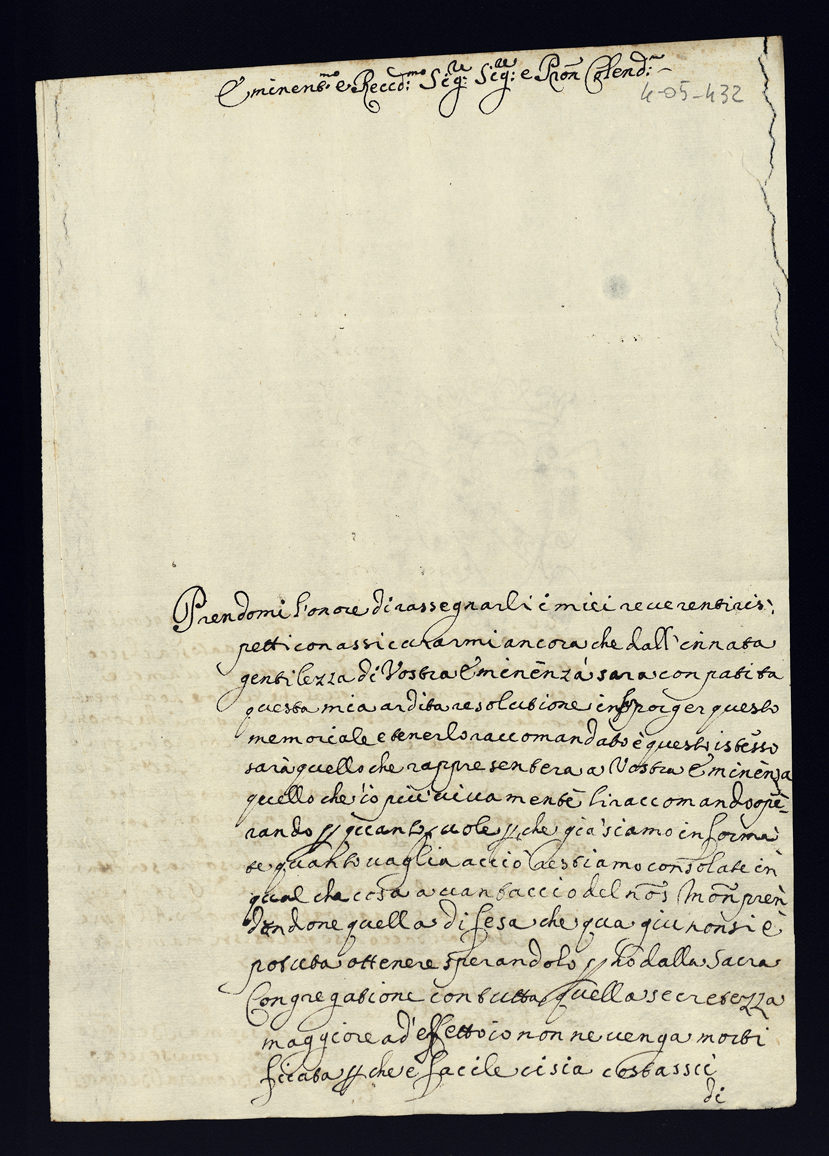 Eminent.mo e Recc.d:mo Sig:re Sig:re e Pron Colend:
4-05-432
Prendomi l'onore di rassegnarli i miei reverenti ris:
petti con assicurarmi ancora che dall' innata
gentilezza di Vostra Eminenza sara conpatita
questa mia ardita resolutione in porger questo
memoriale e tenerlo raccomandato è questo istesso
sarà quello che rappresentera a Vostra Eminenza
quello che io più vivamente li raccomando ope-
rando quanto vole che già siamo informa
te quanto vaglia acciò restiamo consolate in
qual che cosa a vantaccio del nos Mon pren
dendone quella difesa che qua giu non si è
potuta ottenere sperandolo dalla Sacra
Congregatione con tutta quella secretezza
maggiore ad' effetto io non ne venga morti
ficata che è facile ci sia costassi
di